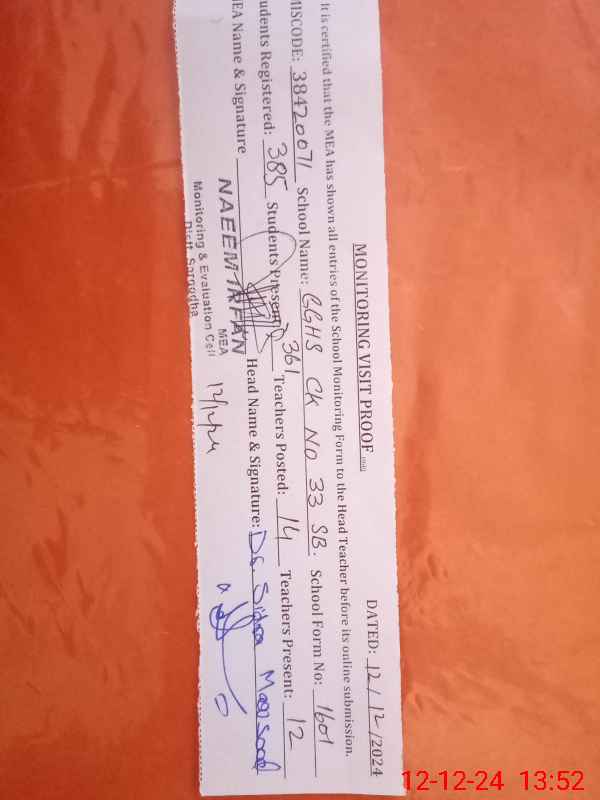 MONITORING VISIT PROOF
DATED: 12/12/2024
It is certified that the MEA has shown all entries of the School Monitoring Form to the Head Teacher before its online submission.
MISCODE: 38420071 School Name: GGHS CK NO 33 SB. School Form No: 1601
udents Registered: 385 Students Present: 361 Teachers Posted: 14 Teachers Present: 12
EA Name & Signature Head Name & Signature: Dr. Sidra Masood
NAEEM IRFAN
MEA
Monitoring & Evaluation Cell
Distt. Sargodha
12/12/24
12-12-24 13:52